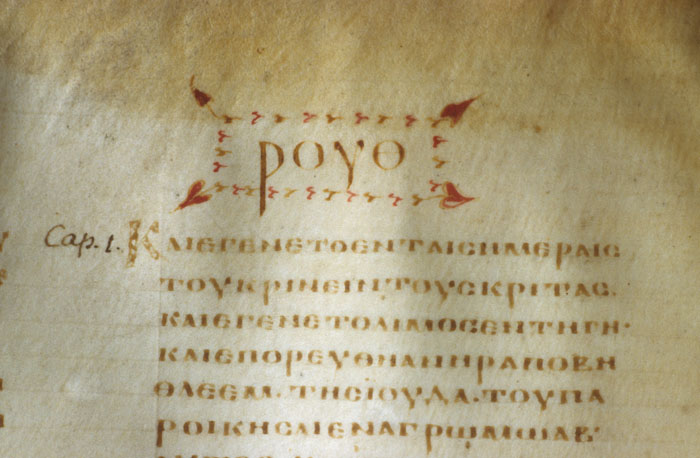 ΡΟΥΘ
Cap. 1. ΚΑΙΕΓΕΝΕΤΟΕΝΤΑΙϹΗΜΕΡΑΙϹ
ΤΟΥΚΡΙΝΕΙΝΤΟΥϹΚΡΙΤΑϹ.
ΚΑΙΕΓΕΝΕΤΟΛΙΜΟϹΕΝΤΗΓΗ·
ΚΑΙΕΠΟΡΕΥΘΗΑΝΗΡΑΠΟΒΗ
ΘΛΕΕΜ.ΤΗϹΙΟΥΔΑ.ΤΟΥΠΑ
ΡΟΙΚΗϹΑΙΕΝΑΓΡΩΜΩΑΒ·